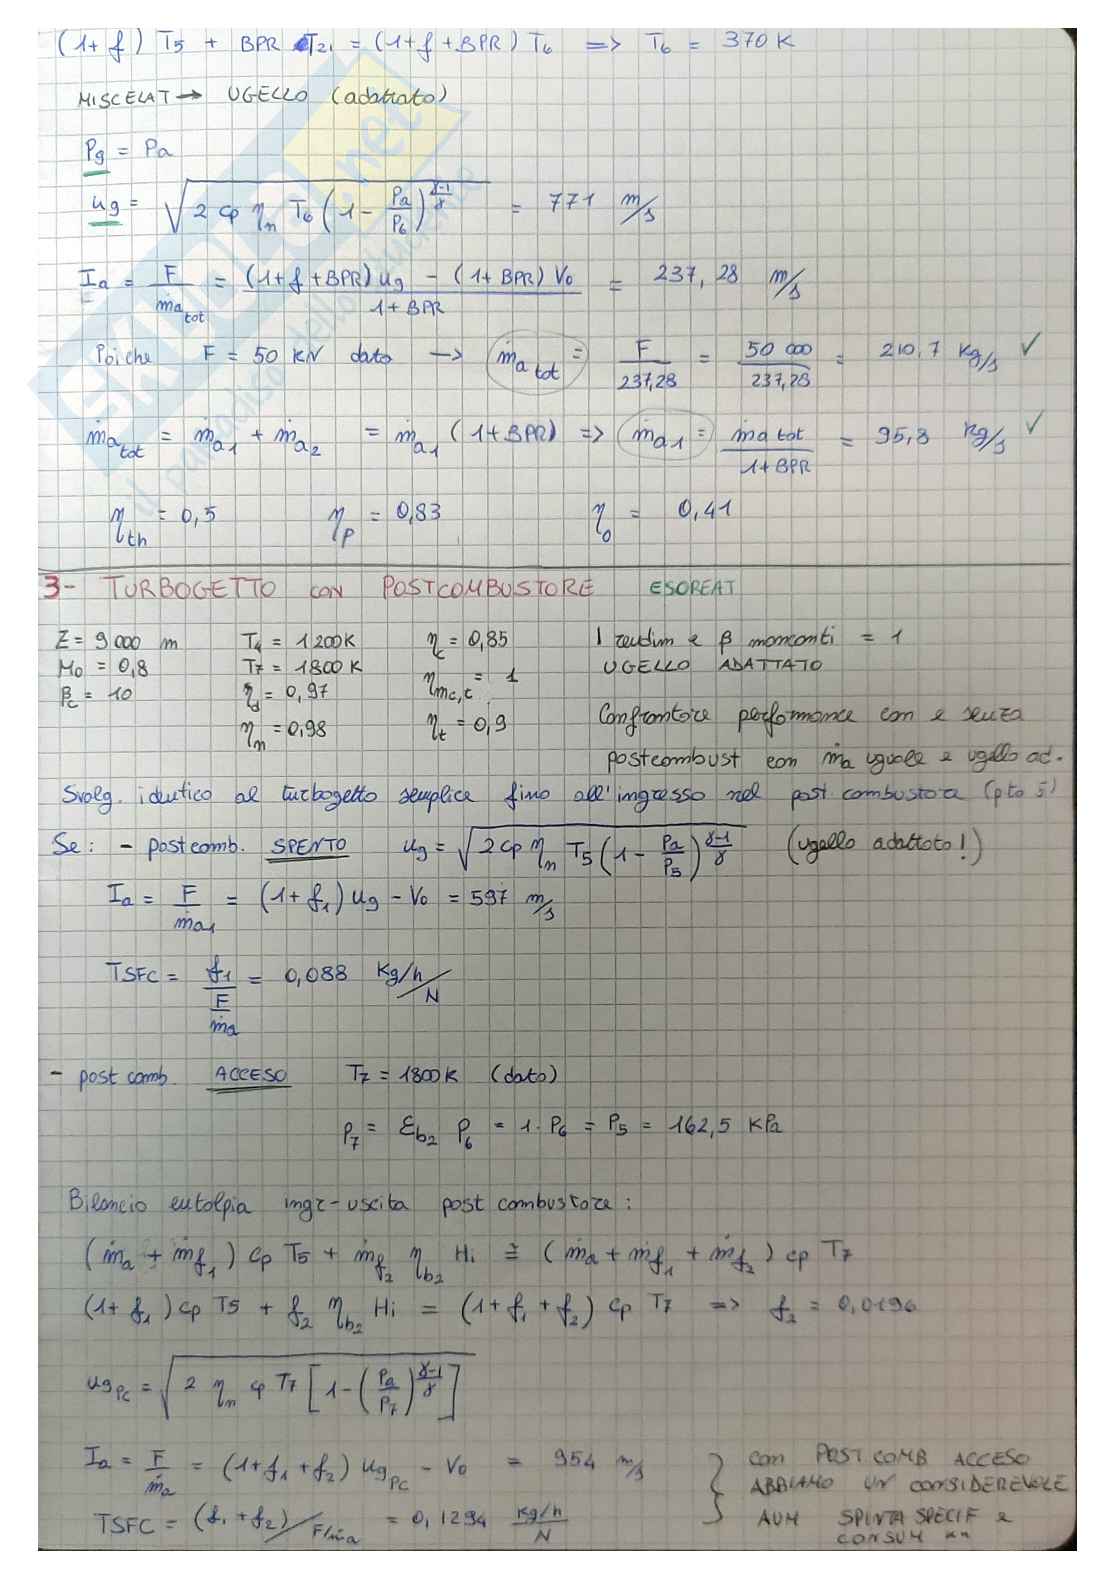 (1+f) T5 + BPR T21 = (1+f+BPR) T6 => T6 = 370 K
MISCELAT → UGELLO (adattato)
Pg = Pa
ug = √(2 cp ηn T6 (1 - Pa/P6)^((γ-1)/γ)) = 771 m/s
Ia = F/ṁa tot = ((1+f+BPR) ug - (1+BPR) V0)/(1+BPR) = 237,28 m/s
Poiche F = 50 KN dato → ṁa tot = F/237,28 = 50 000/237,28 = 210,7 Kg/s ✓
ṁa tot = ṁa1 + ṁa2 = ṁa1 (1+BPR) => ṁa1 = ṁa tot/(1+BPR) = 95,8 Kg/s ✓
ηth = 0,5 ηp = 0,83 ηo = 0,41
3- TURBOGETTO CON POSTCOMBUSTORE ESOREAT
Z = 9000 m T4 = 1200K ηc = 0,85 I rendim e β mancanti = 1
M0 = 0,8 T7 = 1800K ηmc,t = 1 UGELLO ADATTATO
βc = 10 ηd = 0,97
ηn = 0,98 ηt = 0,9 Confrontare performance con e senza
postcombust con ṁa uguale e ugello ad.
Svolg. identico al turbogetto semplice fino all'ingresso nel post combustore (pto 5)
Se: - postcomb. SPENTO ug = √(2 cp ηn T5 (1 - Pa/P5)^((γ-1)/γ)) (ugello adattato!)
Ia = F/ṁa1 = (1+f1) ug - V0 = 597 m/s
TSFC = f1/(F/ṁa) = 0,088 Kg/h/N
- post comb. ACCESO T7 = 1800K (dato)
P7 = εb2 P6 = 1· P6 = P5 = 162,5 KPa
Bilancio entalpia ingr-uscita post combustore:
(ṁa + ṁf1) cp T5 + ṁf2 ηb2 Hi ≅ (ṁa + ṁf1 + ṁf2) cp T7
(1+f1) cp T5 + f2 ηb2 Hi = (1+f1+f2) cp T7 => f2 = 0,0196
ugPC = √(2 ηn cp T7 [1-(Pa/P7)^((γ-1)/γ)])
Ia = F/ṁa = (1+f1+f2) ugPC - V0 = 954 m/s } con POST COMB ACCESO
ABBIAMO UN CONSIDEREVOLE
TSFC = (f1+f2)/F/ṁa = 0,1294 Kg/h/N AUM SPINTA SPECIF e
CONSUM